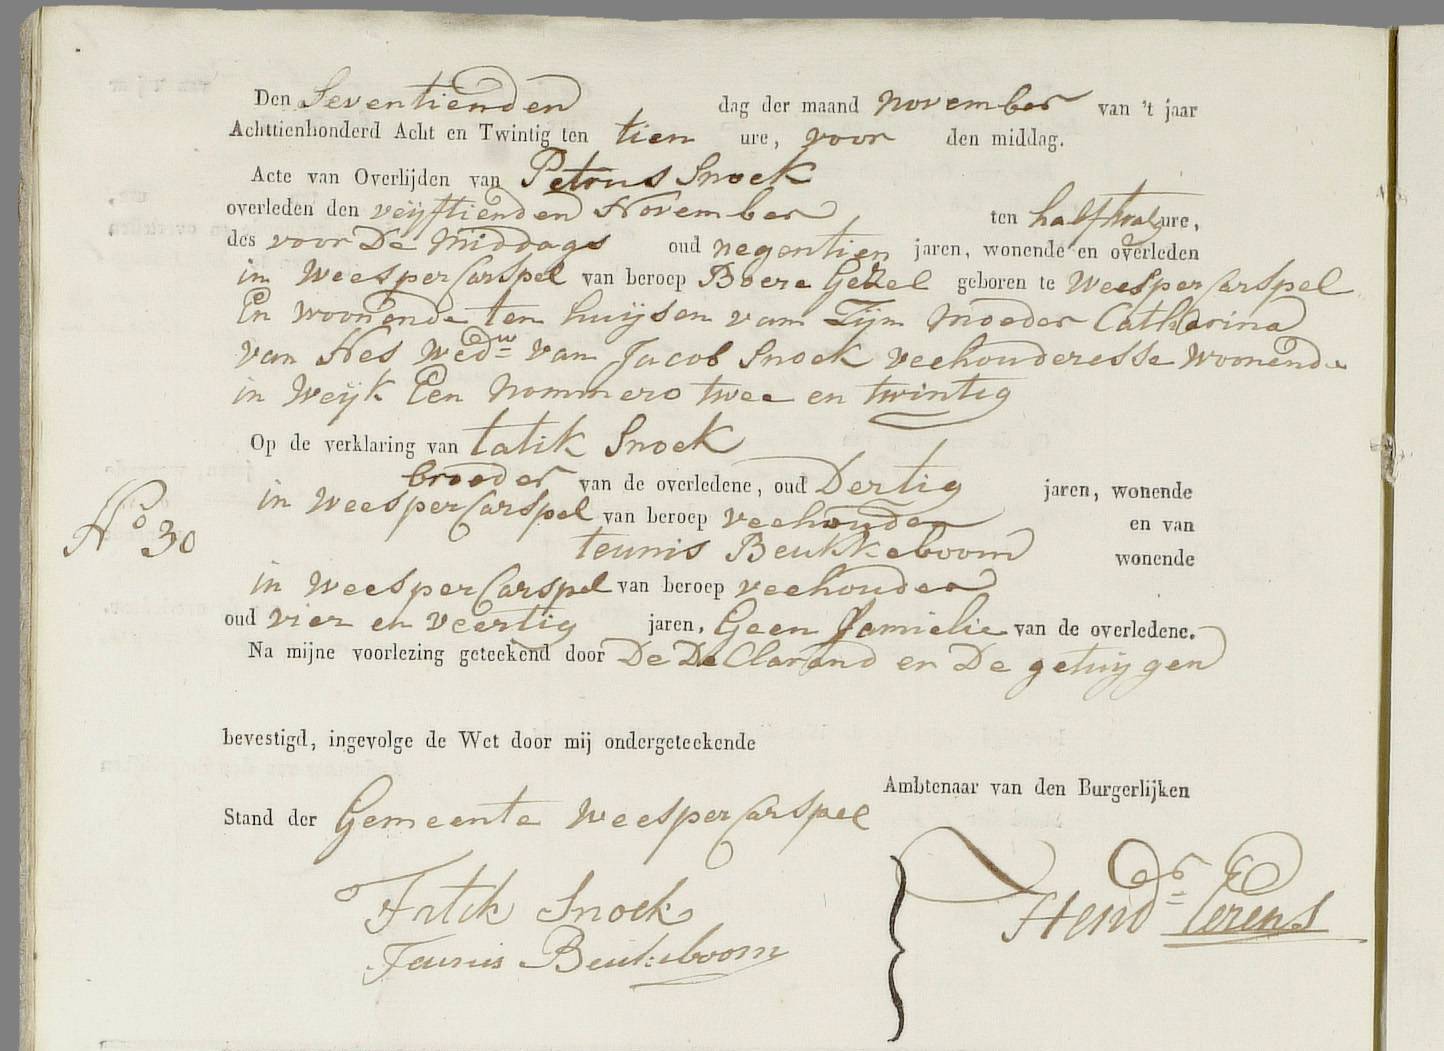 Den Seventienden dag der maand november van 't jaar
Achttienhonderd Acht en Twintig ten tien ure, voor den middag.
Acte van Overlijden van Petrus Snoek
overleden den veijftienden November ten half twalf ure,
des voor De Middags oud negentien jaren, wonende en overleden
in WeesperCarspel van beroep Boere Gezel geboren te WeesperCarspel
En woonende ten huijsen van Zijn Moeder Catharina
van Hes Wedw van Jacob Snoek veehouderesse woonende
in Weijk Een Nommero twee en twintig
Op de verklaring van Snoek
broeder van de overledene, oud Dertig jaren, wonende
in WeesperCarspel van beroep veehouder en van
No 30
teunis Beukkeboom wonende
in WeesperCarspel van beroep veehouder
oud vier en veertig jaren. Geen Familie van de overledene.
Na mijne voorlezing geteekend door De De Clarand en De getuijgen
bevestigd, ingevolge de Wet door mij ondergeteekende
Ambtenaar van den Burgerlijken
Stand der Gemeente WeesperCarspel
Snoek
Teunis Beukeboom
Hendr